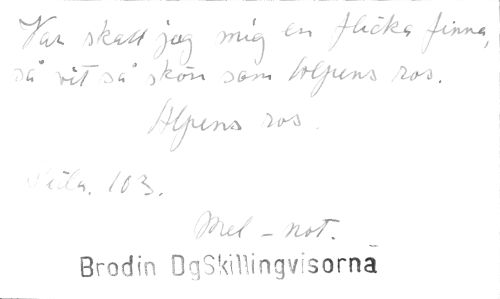 Var skall jag mig en flicka finna,
så vit så skön som Alpens ros.
Alpens ros.
103.
Mel - not.
Brodin DgSkillingvisorna